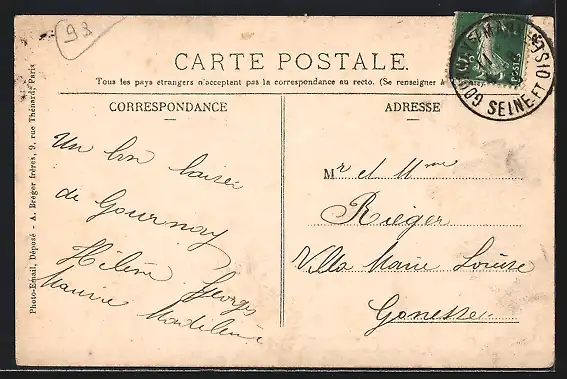 93
CARTE POSTALE.
Tous les pays étrangers n'acceptent pas la correspondance au recto. (Se renseigner à
CORRESPONDANCE
Un bon baiser
de Gournay
Hélène Georges
Maurice Madeleine
ADRESSE
Mr et Mme
Rieger
Villa Marie Louise
Gonesse
GOURNAY-S-MARNE
SEINE-ET-OISE
POSTES
Photo-Email, Déposé - A. Breger frères, 9, rue Thénard - Paris